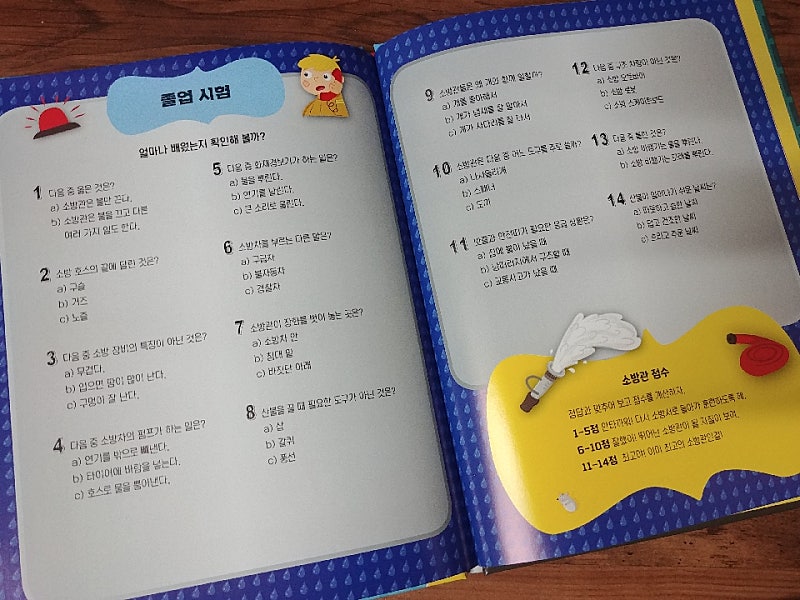 졸업 시험
얼마나 배웠는지 확인해 볼까?
1 다음 중 옳은 것은?
a) 소방관은 불만 끈다.
b) 소방관은 불을 끄고 다른
여러 가지 일도 한다.
2 소방 호스의 끝에 달린 것은?
a) 구슬
b) 거즈
c) 노즐
3 다음 중 소방 장비의 특징이 아닌 것은?
a) 무겁다.
b) 입으면 땀이 많이 난다.
c) 구멍이 잘 난다.
4 다음 중 소방차의 펌프가 하는 일은?
a) 연기를 밖으로 빼낸다.
b) 타이어에 바람을 넣는다.
c) 호스로 물을 뿜어낸다.
5 다음 중 화재경보기가 하는 일은?
a) 물을 뿌린다.
b) 연기를 날린다.
c) 큰 소리로 울린다.
6 소방차를 부르는 다른 말은?
a) 구급차
b) 불자동차
c) 경찰차
7 소방관이 장화를 벗어 놓는 곳은?
a) 소방차 안
b) 침대 밑
c) 바짓단 아래
8 산불을 끌 때 필요한 도구가 아닌 것은?
a) 삽
b) 갈퀴
c) 풍선
9 소방관들은 왜 개와 함께 일할까?
a) 개를 좋아해서
b) 개가 냄새를 잘 맡아서
c) 개가 사다리를 잘 타서
10 소방관은 다음 중 어느 도구를 주로 쓸까?
a) 나사돌리개
b) 스패너
c) 도끼
11 밧줄과 안전띠가 필요한 응급 상황은?
a) 집에 불이 났을 때
b) 낭떠러지에서 구조할 때
c) 교통사고가 났을 때
12 다음 중 구조 차량이 아닌 것은?
a) 소방 오토바이
b) 소방 로봇
c) 소방 스케이트보드
13 다음 중 틀린 것은?
a) 소방 비행기는 물을 뿌린다.
b) 소방 비행기는 모래를 뿌린다.
14 산불이 일어나기 쉬운 날씨는?
a) 따뜻하고 습한 날씨
b) 덥고 건조한 날씨
c) 흐리고 추운 날씨
소방관 점수
정답과 맞추어 보고 점수를 계산하자.
1-5점 안타까워! 다시 소방서로 돌아가 훈련하도록 해.
6-10점 잘했어! 뛰어난 소방관이 될 자질이 보여.
11-14점 최고야! 이미 최고의 소방관인걸!